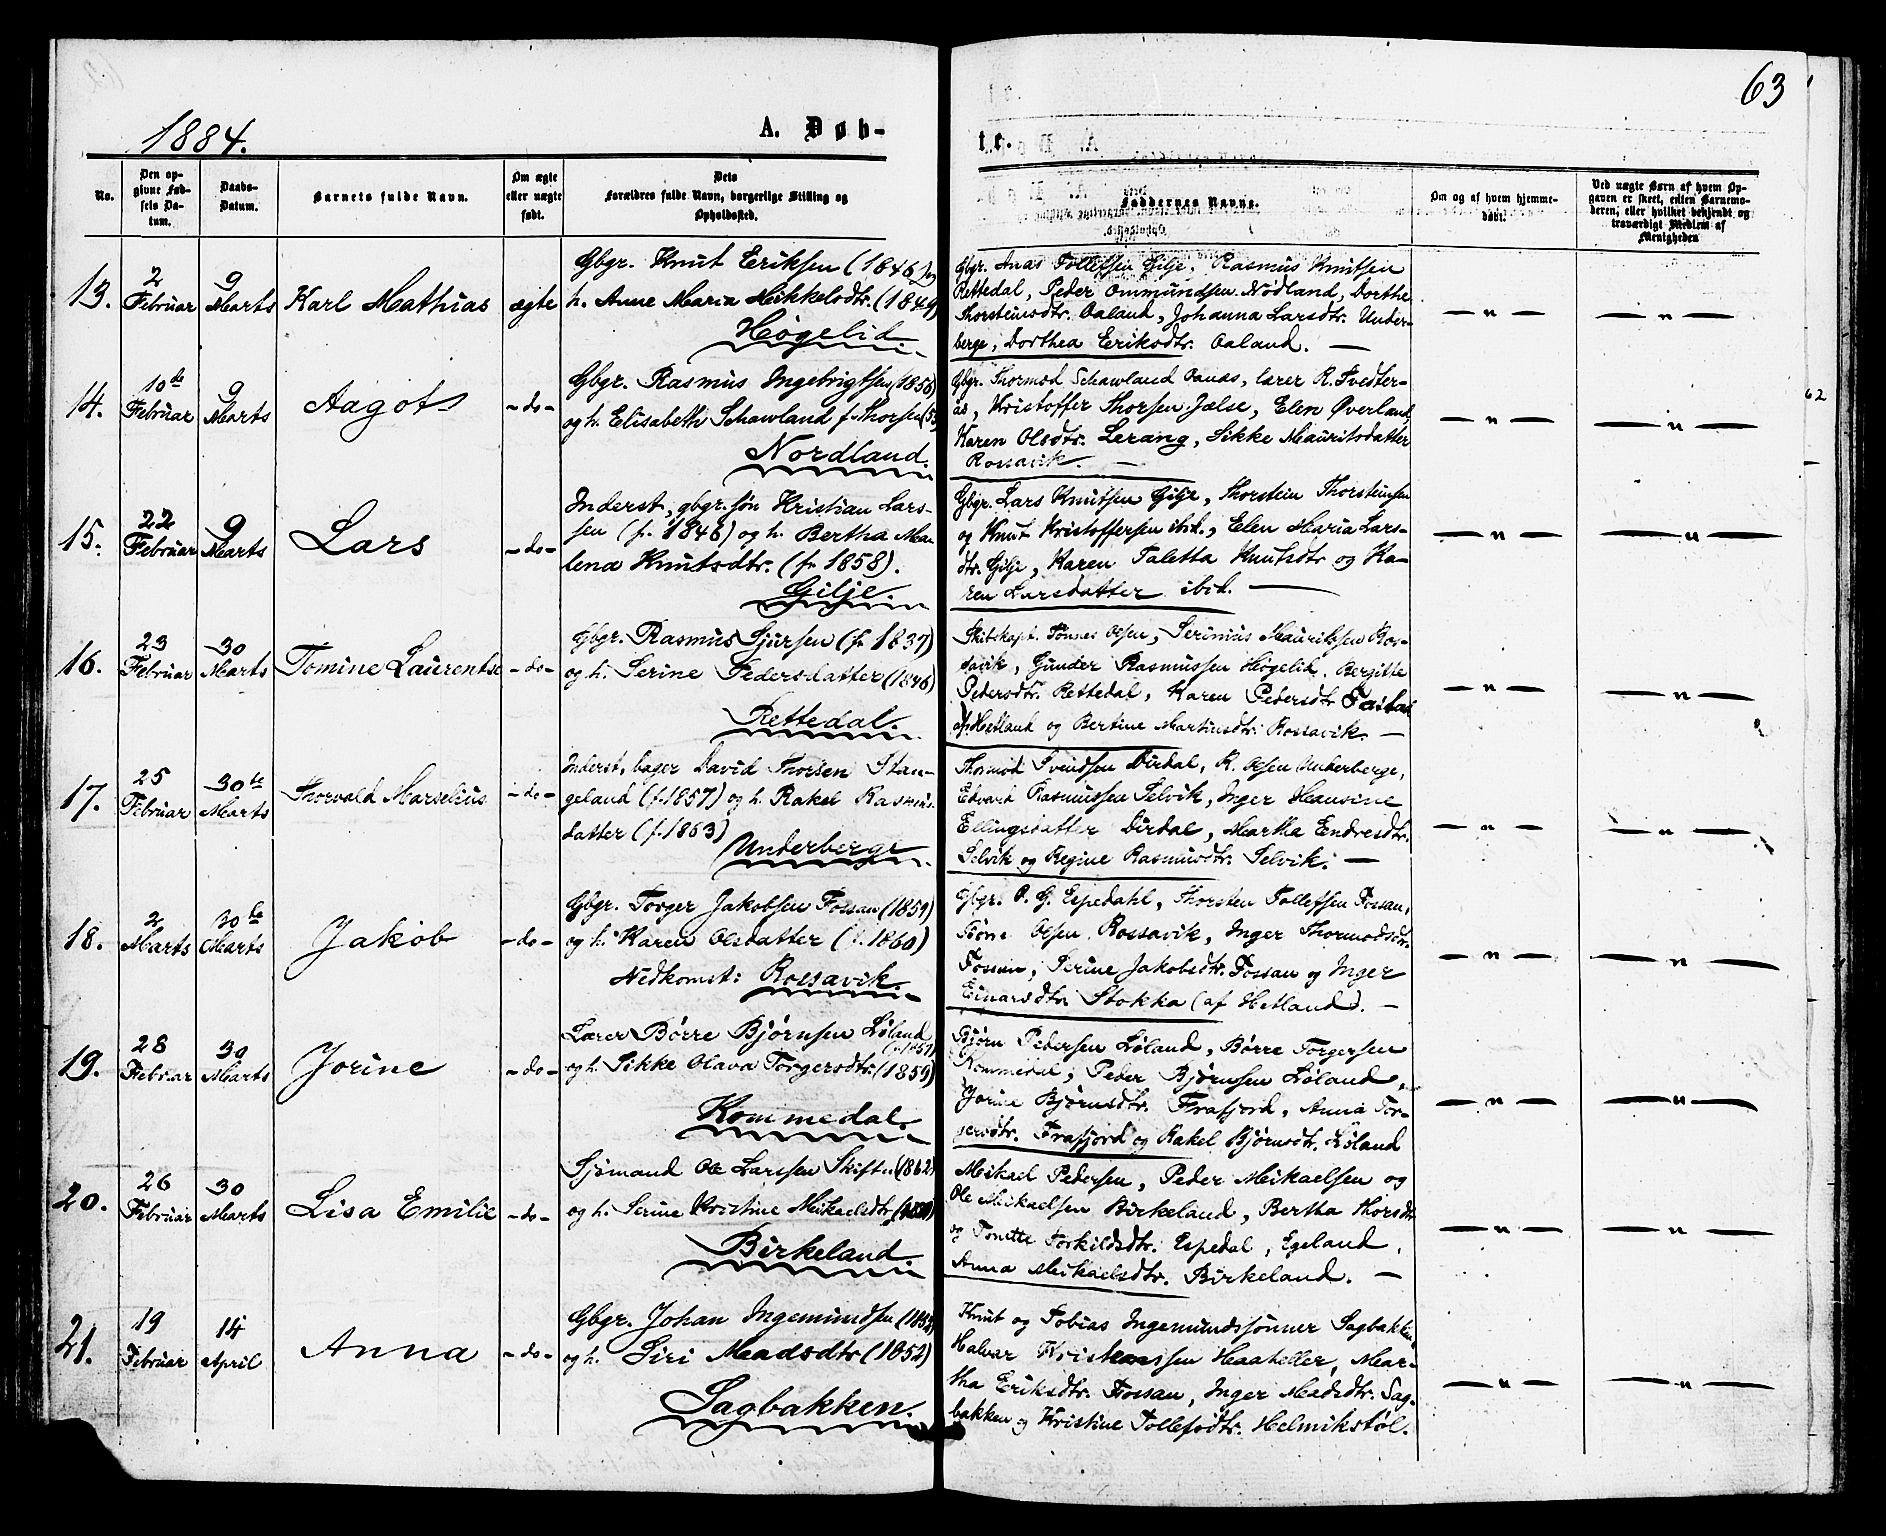 63
1884.
A. Døb-
te.
No.
Den op-
givne Fød-
sels Da-
tum.
Daabs-
Datum.
Barnets fulde Navn.
Om ægte
eller uægte
født.
Dets
Forældres fulde Navn, borgerlige Stilling og
Opholdssted.
Faddernes Navne.
Om og af hvem hjemme-
døbt.
Ved uægte Børn af hvem Op-
gaven er skeet, enten Barnemo-
deren, eller hvilket bekjendt og
troværdigt Medlem af
Menigheden
13.
2
Februar
9
Marts
Karl Mathias
ægte
Gbgr. Knut Eriksen (1846) og
h. Anne Maria Mikkelsdtr. (1849)
Høgelid.
Gbgr. Anas Tollefsen Gilje, Rasmus Knutsen
Rettedal, Peder Ommundsen Nødland, Dorthe
Thorsteinsdtr. Oaland, Johanna Larsdtr. Under-
berge, Dorthea Eriksdtr. Oaland. —
— " —
— " —
14.
10de
Februar
9
Marts
Aagot
- do -
Gbgr. Rasmus Ingebrigtsen (1856
og h. Elisabeth Schawland f. Thorsen
Nordland.
Gbgr. Thormod Schawland Oanas, lærer R. Tvedter-
aas, Kristoffer Thorsen Jælse, Elen Øverland,
Karen Olsdtr. Lerang, Sikke Mauritsdatter
Rossavik. —
— " —
— " —
15.
22
Februar
9
Marts
Lars
- do -
Inderst, gbgr. søn Kristian Lars-
sen (f. 1846) og h. Bertha Ma-
lena Knutsdtr. (f. 1858).
Gilje.
Gbgr. Lars Knutsen Gilje, Thorstein Thorsteinsen
og Knut Kristoffersen ibid., Elen Maria Lars-
dtr. Gilje, Karen Taletta Knutsdtr og Ka-
ren Larsdatter ibid. —
— " —
— " —
16.
23
Februar
30
Marts
Tomine Laurentse
- do -
Gbgr. Rasmus Sjursen (f. 1837)
og h. Serine Pedersdatter (1846)
Rettedal.
Skibskapt. Tønnes Olsen, Serinius Mauritssen Ros-
savik, Gunder Rasmussen Høgelid, Bergitte
Pedersdtr. Rettedal, Karen Pedersdtr
af Hetland og Bertine Martinsdtr. Rossavik. —
— " —
— " —
17.
25
Februar
30te
Marts
Thorvald Marselius
- do -
Inderst, bager David Thorsen Stan-
geland (f. 1857) og h. Rakel Rasmus-
datter (f. 1863)
Underberge.
Thormod Svendsen Dirdal, R. Olsen Underberge,
Edvard Rasmussen Selvik, Inger Hansine
Ellingsdatter Dirdal, Martha Endresdtr.
Selvik og Regine Rasmusdtr. Selvik. —
— " —
— " —
18.
2
Marts
30te
Marts
Jakob
- do -
Gbgr. Torger Jakobsen Fossan (1859)
og h. Karen Olsdatter (f. 1860)
Nedkomst: Rossavik.
Gbgr. O. G. Espedahl, Thorsten Tollefsen Fossan,
Olsen Rossavik, Inger Thormodsdtr.
Fossan, Serine Jakobsdtr. Fossan og Inger
Einarsdtr. Stokka (af Hetland). —
— " —
— " —
19.
28
Februar
30
Marts
Jorine
- do -
Lærer Børre Bjørnsen Løland
(f. 1857)
og h. Sikke Olava Torgersdtr. (1859)
Kommedal.
Bjørn Pedersen Løland, Børre Torgersen
Kommedal, Peder Bjørnsen Løland,
Jorine Bjørnsdtr. Frafjord, Anna Tor-
gersdtr. Frafjord og Rakel Bjørnsdtr. Løland
— " —
— " —
20.
26
Februar
30
Marts
Lisa Emilie
- do -
Sjømand Ole Larssen Skiftu (1862)
og h. Serine Kristine Mikaelsdtr
Birkeland
Mikael Pedersen, Peder Mikaelsen og
Ole Mikaelsen Birkeland, Bertha Thorsdtr
og Tonette Torkildsdtr. Espedal, Egeland,
Anna Mikaelsdtr. Birkeland. —
— " —
— " —
21.
19
Februar
14
April
Anna
- do -
Gbgr. Johan Ingemundsen
og h. Siri Madsdtr (1852)
Sagbakken.
Knut og Tobias Ingemundssønner Sagbakken
Halvar Kristenssen Haaheller, Mar-
tha Eriksdtr. Fossan, Inger Madsdtr. Sag-
bakken og Kristine Tollefsdtr. Helmikstøl.
— " —
— " —
62